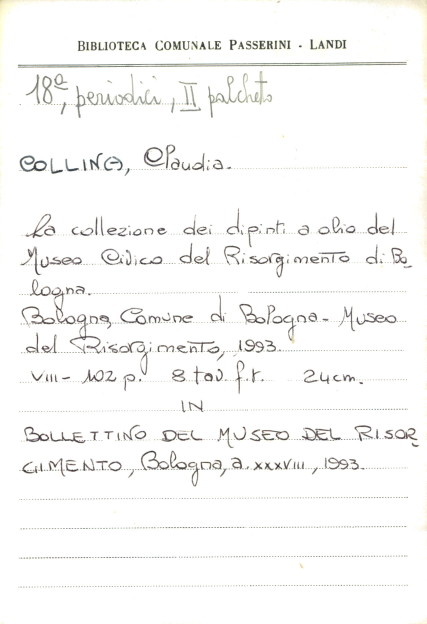 BIBLIOTECA COMUNALE PASSERINI - LANDI
18ª, periodici, II palcheto
COLLINA, Claudia.
La collezione dei dipinti a olio del
Museo Civico del Risorgimento di Bo-
logna.
Bologna, Comune di Bologna - Museo
del Risorgimento, 1993.
VIII - 102 p. 8 tav. f.t. 24cm.
IN
BOLLETTINO DEL MUSEO DEL RISOR-
GIMENTO, Bologna, a. XXXVIII, 1993.